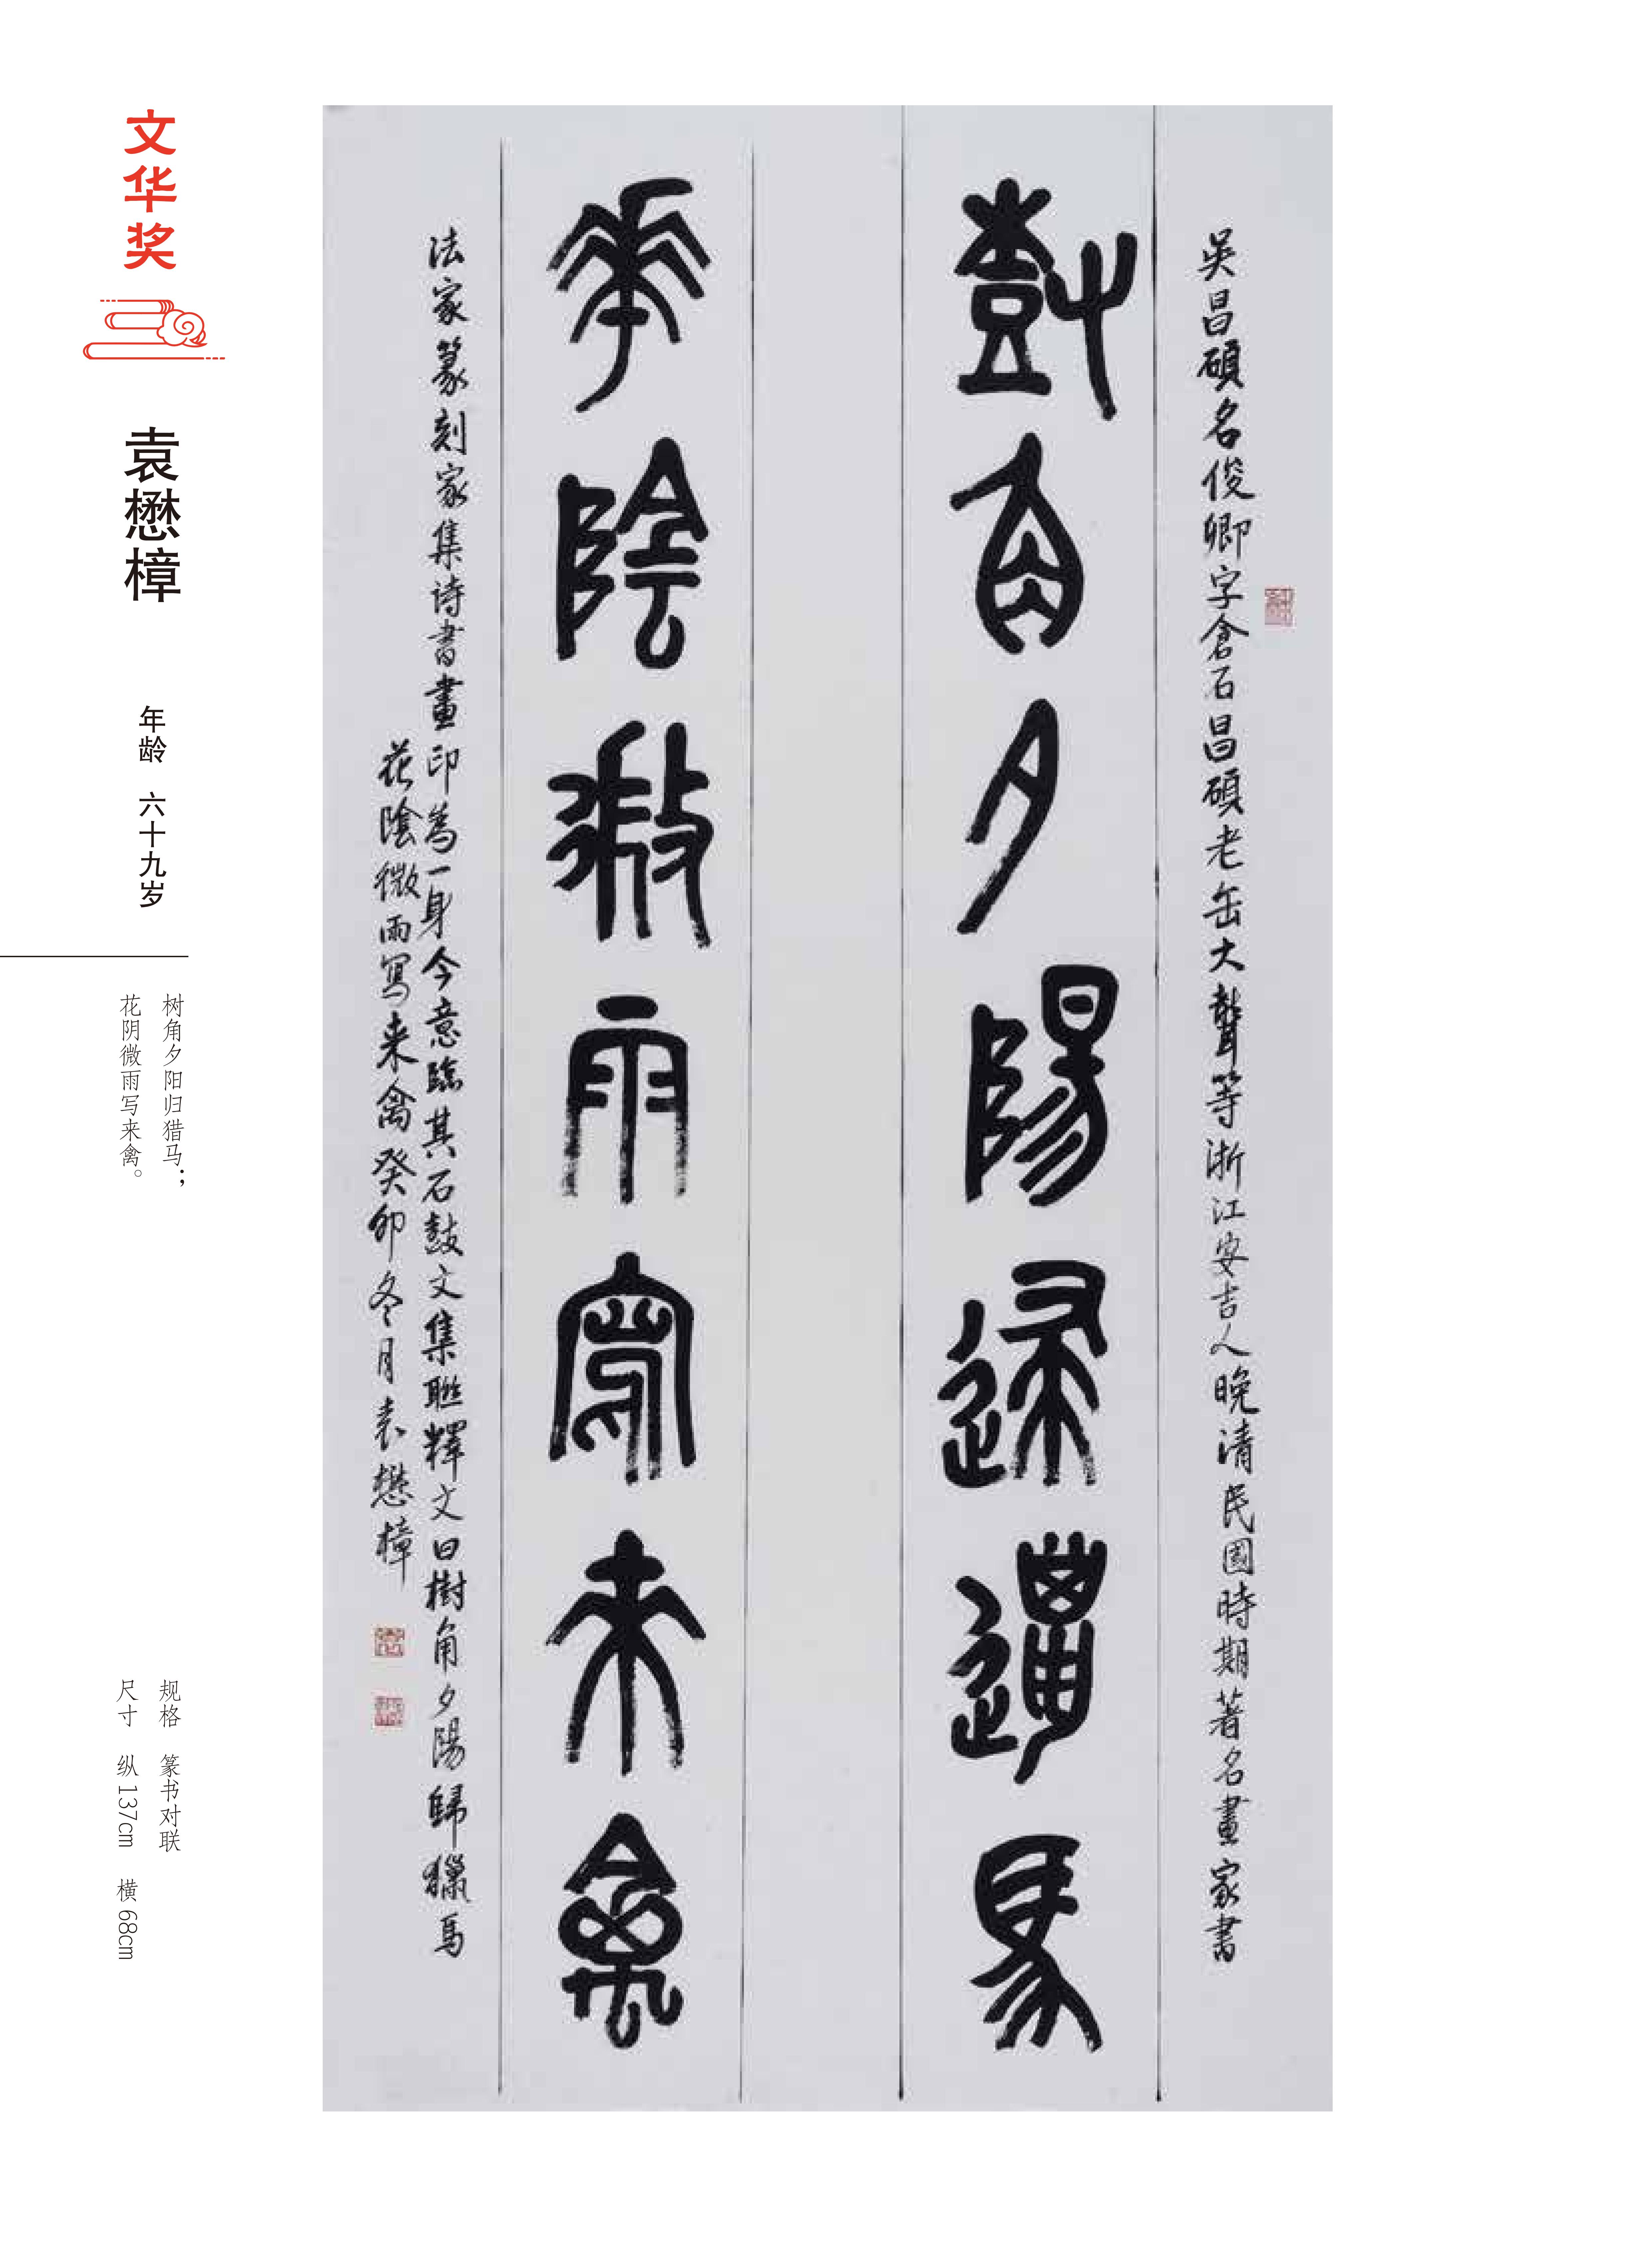 文华奖
袁懋樟
年龄 六十九岁
树角夕阳归猎马；
花阴微雨写来禽。
规格 篆书对联
尺寸 纵137cm 横68cm
吳昌碩名俊卿字倉石昌碩老缶大聾等浙江安吉人晚清民國時期著名畫家書
樹角夕陽歸獵馬
花陰微雨寫來禽
法家篆刻家集诗書畫印為一身今意臨其石鼓文集聯釋文曰樹角夕陽歸獵馬
花陰微雨寫来禽癸卯冬月袁懋樟